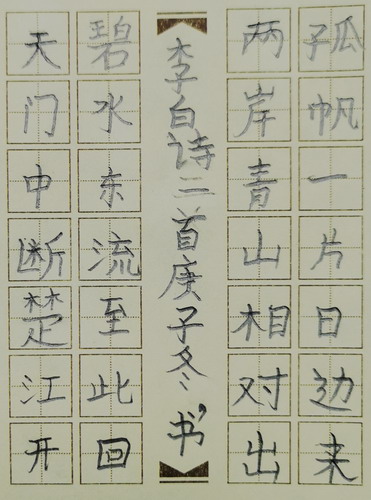 天门中断楚江开
碧水东流至此回
李白诗二首庚子冬书
两岸青山相对出
孤帆一片日边来